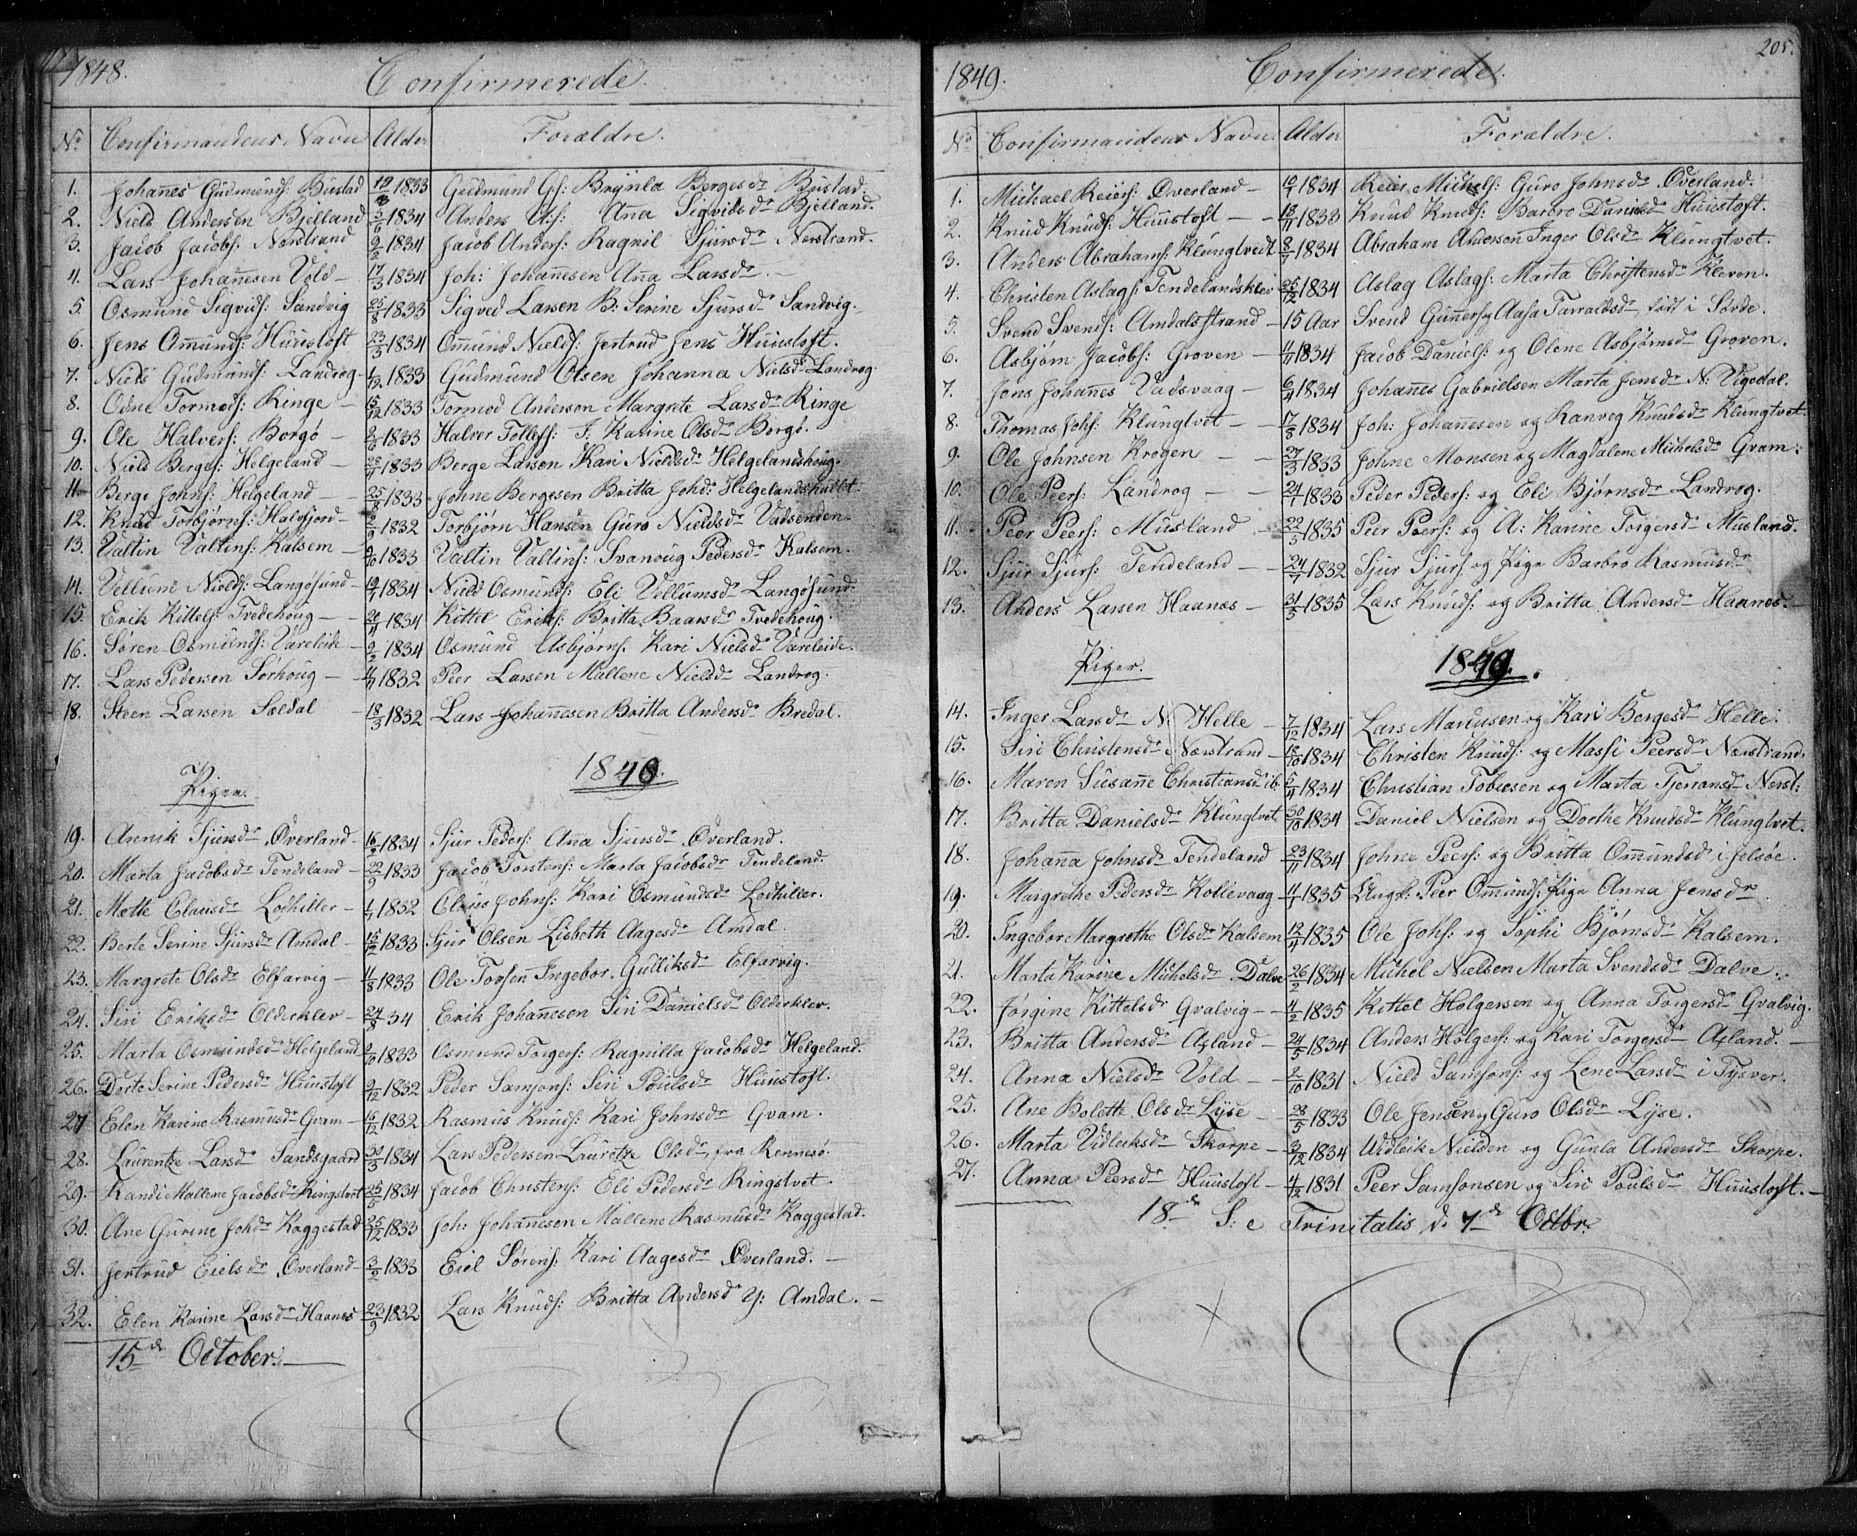 1848.
Confirmerede.
No Confirmandens Navn Alder Forældre.
1. Johañes Gudmunds: Bustad 1833 Gudmund Gs: Brynla Bergesdr Bustad.
2. Niels Andersen Bjelland 1834 Anders As: Aña Sigvidsdr Bjelland.
3. Jacob Jacobs: Nerstrand 9/2 1834 Jacob Anders: Ragnil Sjursdr Nerstrand.
4. Lars Johañesen Vold – 17/3 1834 Joh: Johañesen Aña Larsdr –
5. Osmund Sigvids: Sandvig 25/8 1833 Sigved Larsen B: Serine Sjursdr Sandvig.
6. Jens Omunds: Huustoft 23/3 1834 Omund Niels: Jertrud Jens Huustoft.
7. Niels Gudmunds: Landrog – 1833 Gudmund Olsen Johanna Nielsdr Landrog
8. Odne Tormods: Ringe – 15/12 1833 Tormod Anderson Margrete Larsdr Ringe
9. Ole Halvers: Borgö – 1833 Halver Tollefs: I. Karine Olsdr Borgö.
10. Niels Berges: Helgeland – 1833 Berge Larsen Kari Nieldsdr Helgelandshoug.
11. Berge Johns: Helgeland – 25/8 1833 Johne Bergesen Britta Johdr: Helgelandshullet.
12. Knud Torbjörns: Halsfjord – 1832 Torbjörn Hansen Guro Nieldsdr Vadsenden.
13. Valtin Valtins: Kalsem – 1833 Valtin Valtins: Svanoug Pedersdr Kalsem.
14. Vellum Nields: Langösund – 1834 Nield Osmunds: Eli Vellumsdr Langösund.
15. Erik Kittels: Tvedehoug – 1834 Kittel Eriks: Britta Baarsdr Tvedehoug.
16. Sören Osmunds: Vareleide – 9/2 1834 Osmund Asbjörns: Kari Nielsdr Vareleide.
17. Lars Pedersen Sörhoug – 1832 Peer Larsen Mallene Nieldsdr Landrog.
18. Steen Larsen Sældal – 18/3 1832 Lars Johañesen Britta Andersdr Bredal.
Piger. 1848.
19. Annik Sjursdr Överland – 16/2 1834 Sjur Peders: Aña Sjursdr Överland.
20. Marta Jacobsdr Tendeland – 1833 Jacob Torstens: Marta Jacobsdr Tendeland.
21. Mette Clausdr Lodhiller – 1832 Claus Johns: Kari Osmundsdr Lodhiller.
22. Berte Serine Sjursdr Amdal – 15/2 1833 Sjur Olsen Lisbeth Aagesdr Amdal.
23. Margrete Olsdr Elfarvig – 1833 Ole Torsen Ingebor Gulliksdr Elfarvig.
24. Siri Eriksdr Olderklev – 24/8 34 Erik Johañesen Siri Danielsdr Olderklev.
25. Marta Osmundsdr Helgeland 1833 Osmund Torgers: Ragnilla Jacobsdr Helgeland.
26. Dorte Serine Pedersdr Huustoft 9/12 1832 Peder Samsons: Siri Poulsdr Huustoft.
27 Elen Karine Rasmusdr Gvam – 16/12 1832 Rasmus Knuds: Kari Johnsdr Gvam.
28. Laurentze Larsdr Sandsgaard 30/5 1834 Lars Pedersen Lauretze Olsdr, fra Rennesö.
29. Randi Mallene Jacobsdr Ringstvet 25/5 1834 Jacob Christens: Eli Pedersdr Ringstvet.
30. Ane Gurine Johdr Kaggestad 25/12 1833 Joh: Johañesen Mallene Rasmusdr Kaggestad.
31. Jertrud Eielsdr Överland – 3/2 1833 Eiel Sörens: Kari Aagesdr Överland. –
32. Elen Karine Larsdr Haanes 23/9 1832 Lars Knuds: Britta Andersdr y: Amdal. –
15de October. –
1849.
Confirmerede.
205.
No Confirmandens Navn Alder Forældre.
1. Michael Reiers: Överland – 1834 Reier Michels: Guro Johnsdr Överland.
2. Knud Knuds: Huustoft – – 1833 Knud Knuds: Barbro Danielsdr Huustoft.
3. Anders Abrahams: Klungtvedt 1834 Abraham Andersen Inger Olsdr Klungtvet.
4. Christen Aslags: Tendelandsklev 25/12 1834 Aslag Aslags: Marta Christensdr Kleven.
5. Svend Svends: Amdalsstrand – 15 Aar Svend Guñers: og Aasa Tarraldsdr, född i Sövde.
6. Asbjörn Jacobs: Groven – 1834 Jacob Daniels: og Olene Asbjörnsdr Groven.
7. Jens Johañes Vadsvaag – 1834 Johañes Gabrielsen Marta Jensdr N: Vigedal.
8. Thomas Johs: Klungtvet – – 17/8 1834 Joh: Johañesen og Ranveg Knudsdr Klungtvet.
9. Ole Johnsen Krogen – – 27/3 1833 Johne Monsen og Magdalene Michelsdr Gvam:
10. Ole Peers: Landrog – – 1833 Peder Peders: og Eli Bjornsdr Landrog.
11. Peer Peers: Musland – 22/5 1835 Peer Peers: og A: Karine Torgersdr Musland.
12. Sjur Sjurs: Tendeland – – 1832 Sjur Sjurs: og Pige Barbro Rasmusdr
13. Anders Larsen Haanes – 31/5 1835 Lars Knuds: og Britta Andersdr Haanes. –
Piger. 1849.
14. Inger Larsdr N: Helle – 7/12 1834 Lars Mareusen og Kari Bergesdr Helle.
15. Siri Christensdr Nærstrand – 18/10 1834 Christen Knuds: og Massi Peersdr Nærstrand.
16. Maren Susañe Christiansdr ib. 1834 Christian Tobiesen og Marta Tjerransdr Nerst:
17. Britta Danielsdr Klungtvet 30/10 1834 Daniel Nielsen og Dorthe Knudsdr Klungtvet.
18. Johaña Johnsdr Tendeland 23/11 1834 Johne Peers: og Britta Omundsd i Jelsöe.
19. Margrethe Pedersdr Kollevaag – 1835 Ungk: Peer Omunds: Pige Anna Jensdr
20. Ingebor Margrethe Olsdr Kalsem 1835 Ole Johs: og Sophi Bjørnsdr Kalsem.
21. Marta Karine Michelsdr Dalve 26/2 1834 Michel Nielsen Marta Svendsdr Dalve.
22. Jørgine Kittelsdr Qvalvig – – 4/2 1835 Kittel Holgersen og Anna Torgersdr Qvalvig.
23. Britta Andersdr Aeland – 24/5 1834 Anders Holgers: og Kari Torgersdr Aeland. –
24. Anna Nielsdr Vold – – 2/10 1831 Nield Samsons: og Lene Larsdr i Tysver.
25. Ane Bolette Olsdr Lyse – 28/5 1833 Ole Jensen og Guro Olsdr Lyse.
26. Marta Vidleiksdr Skorpe – 3/12 1834 Widleik Nielsen og Gunla Andersdr Skorpe.
27. Anna Peersdr Huustoft – 4/12 1831 Peer Samsonsen og Siri Poulsdr Huustoft. –
18de S: e Trinitatis d. 7de Octbr.